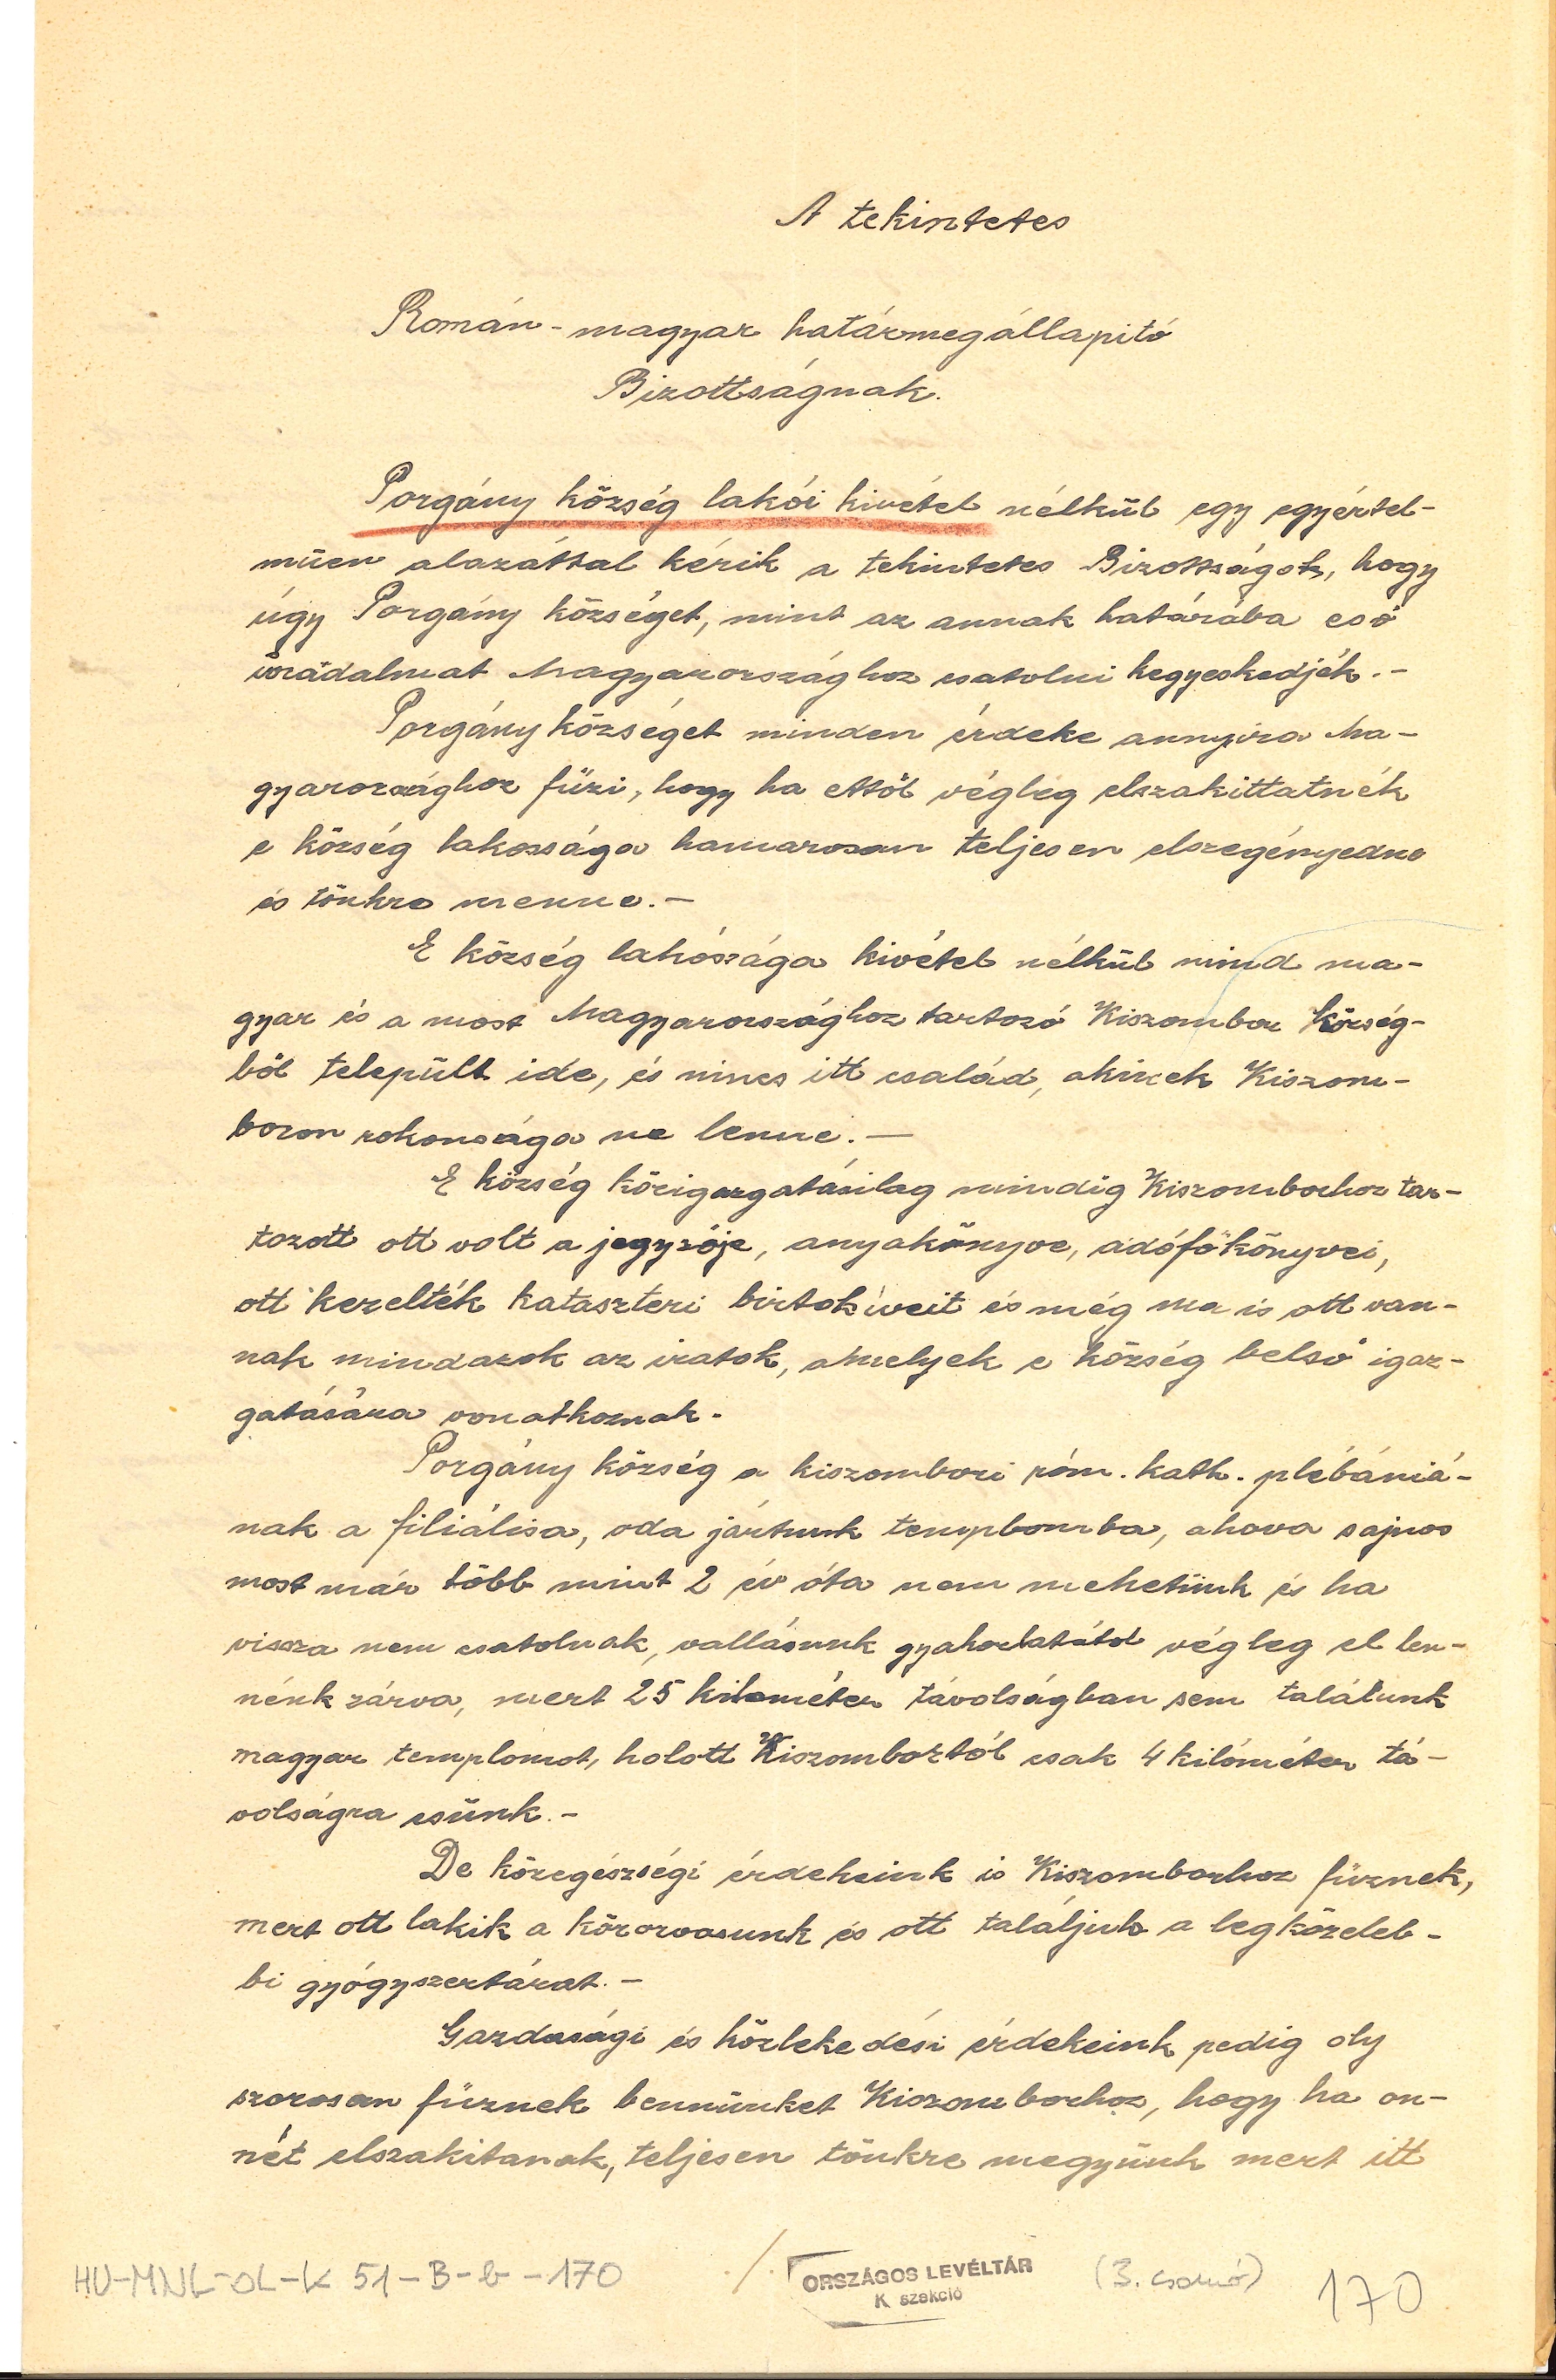 A tekintetes
Román-magyar határmegállapitó
Bizottságnak.
Porgány község lakói kivétel nélkül egy egyértel-
müen alazattal kérik a tekintetes Bizottságot, hogy
úgy Porgány községet, mint az annak határába eső
uradalmat Magyarországhoz csatolni kegyeskedjék.-
Porgány községet minden érdeke annyira Ma-
gyarországhoz füzi, hogy ha ettől végleg elszakittatnék
e község lakossága hamarosan teljesen elszegényedne
és tönkre menne.-
E község lakóssága kivétel nélkül mind ma-
gyar és a most Magyarországhoz tartozó Kiszombor község-
ből települt ide, és nincs itt család, akinek Kiszom-
boron rokonsága ne lenne.-
E község közigazgatásilag mindig Kiszomborhoz tar-
tozott ott volt a jegyzője, anyakönyve, adófőkönyvei,
ott kezelték kataszteri birtokiveit és még ma is ott van-
nak mindazok az iratok, amelyek e község belső igaz-
gatására vonatkoznak.
Porgány község a kiszombori róm. kath. plébániá-
nak a filiálisa, oda jártunk templomba, ahova sajnos
most már több mint 2 év óta nem mehetünk és ha
vissza nem csatolnak, vallásunk gyakorlatától végleg el len-
nénk zárva, mert 25 kilométer távolságban sem találunk
magyar templomot, holott Kiszombortól csak 4 kilóméter tá-
volságra esünk.-
De közegészségi érdekeink is Kiszomborhoz füznek,
mert ott lakik a körorvosunk és ott találjuk a legközeleb-
bi gyógyszertárat.-
Gazdasági és közlekedési érdekeink pedig oly
szorosan füznek bennünket Kiszomborhoz, hogy ha on-
nét elszakitanak, teljesen tönkre megyünk mert itt
HU-MNL-OL-K 51-B-b-170
./.
ORSZÁGOS LEVÉLTÁR
K szekció
(3. csomó)
170